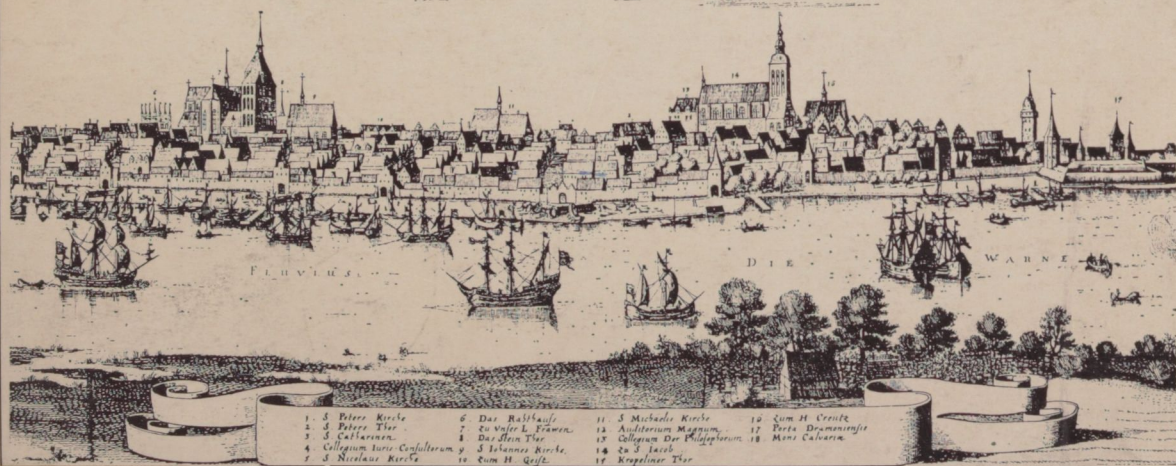 FLUVIUS
DIE WARNE
1. S Peters Kirche
2. S Peters Thor.
3. S Catharinen
4. Collegium Iuris-Consultorum
5. S Nicolaus Kirche
6 Das Rahthauss
7. Zu Vnser L. Frawen
8. Das Stein Thor
9 S Iohannes Kirche
10 Zum H. Geist
11. S Michaelis Kirche
12 Auditorium Magnum
13 Collegium Der Philosophorum
14 Zu S Iacob
15 Kropeliner Thor
16 Zum H Creutz
17 Porta Dramensis
18 Mons Calvariæ